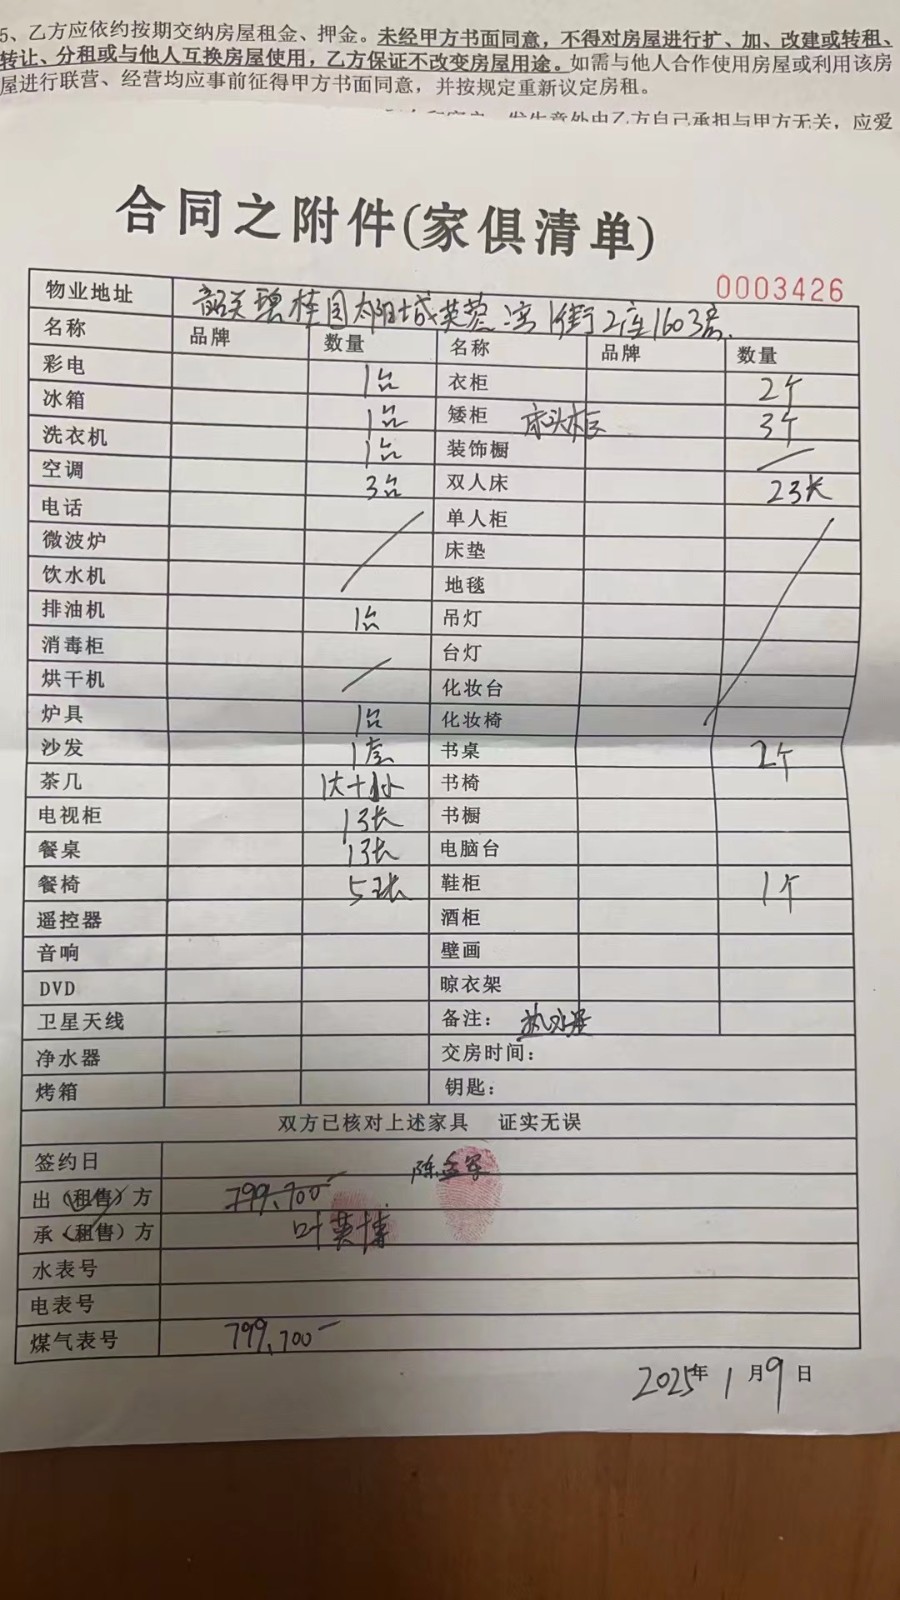 5、乙方应依约按期交纳房屋租金、押金。未经甲方书面同意，不得对房屋进行扩、加、改建或转租、
转让、分租或与他人互换房屋使用，乙方保证不改变房屋用途。如需与他人合作使用房屋或利用该房
屋进行联营、经营均应事前征得甲方书面同意，并按规定重新议定房租。
发生意外由乙方自己承担与甲方无关，应爱
合同之附件(家俱清单)
0003426
物业地址 韶关碧桂园太阳城芙蓉湾1街2座1603房
名称 品牌 数量 名称 品牌 数量
彩电 1台 衣柜 2个
冰箱 1台 矮柜 床头柜 3个
洗衣机 1台 装饰橱
空调 3台 双人床 23长
电话 单人柜
微波炉 床垫
饮水机 地毯
排油机 1台 吊灯
消毒柜 台灯
烘干机 化妆台
炉具 1台 化妆椅
沙发 1套 书桌 2个
茶几 1大+1小 书椅
电视柜 1张 书橱
餐桌 1张 电脑台
餐椅 5张 鞋柜 1个
遥控器 酒柜
音响 壁画
DVD 晾衣架
卫星天线 备注： 热水器
净水器 交房时间：
烤箱 钥匙：
双方已核对上述家具 证实无误
签约日
出（租售）方 799.700 陈孟军
承（租售）方 叶英博
水表号
电表号
煤气表号 799.700
2025年1月9日